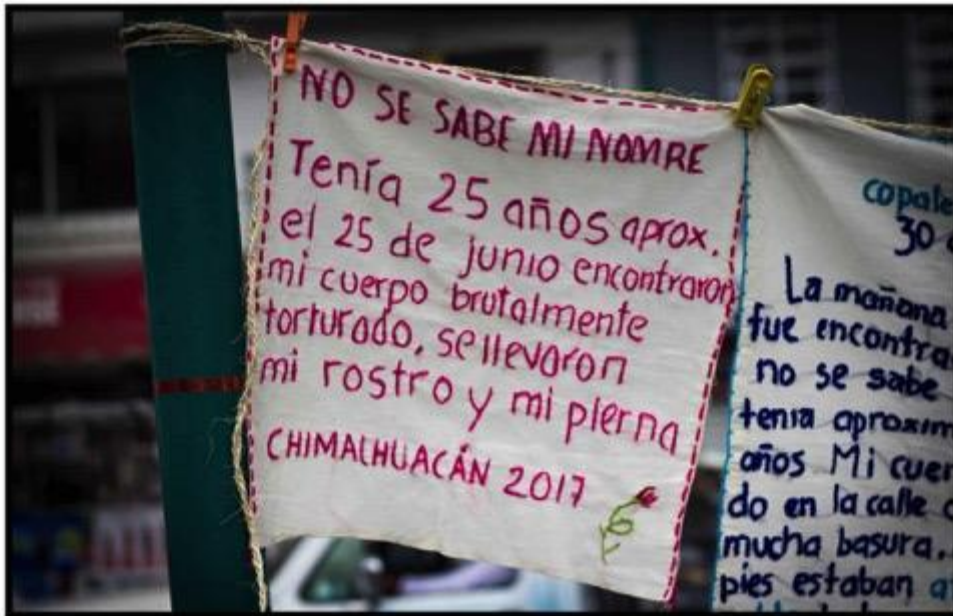 NO SE SABE MI NOMRE
Tenía 25 años aprox.
el 25 de junio encontraron
mi cuerpo brutalmente
torturado, se llevaron
mi rostro y mi pierna
CHIMALHUACÁN 2017
copale
30
La mañana
fue encontra
no se sabe
tenia aproxim
años Mi cuer
do en la calle
mucha basura.
pies estaban